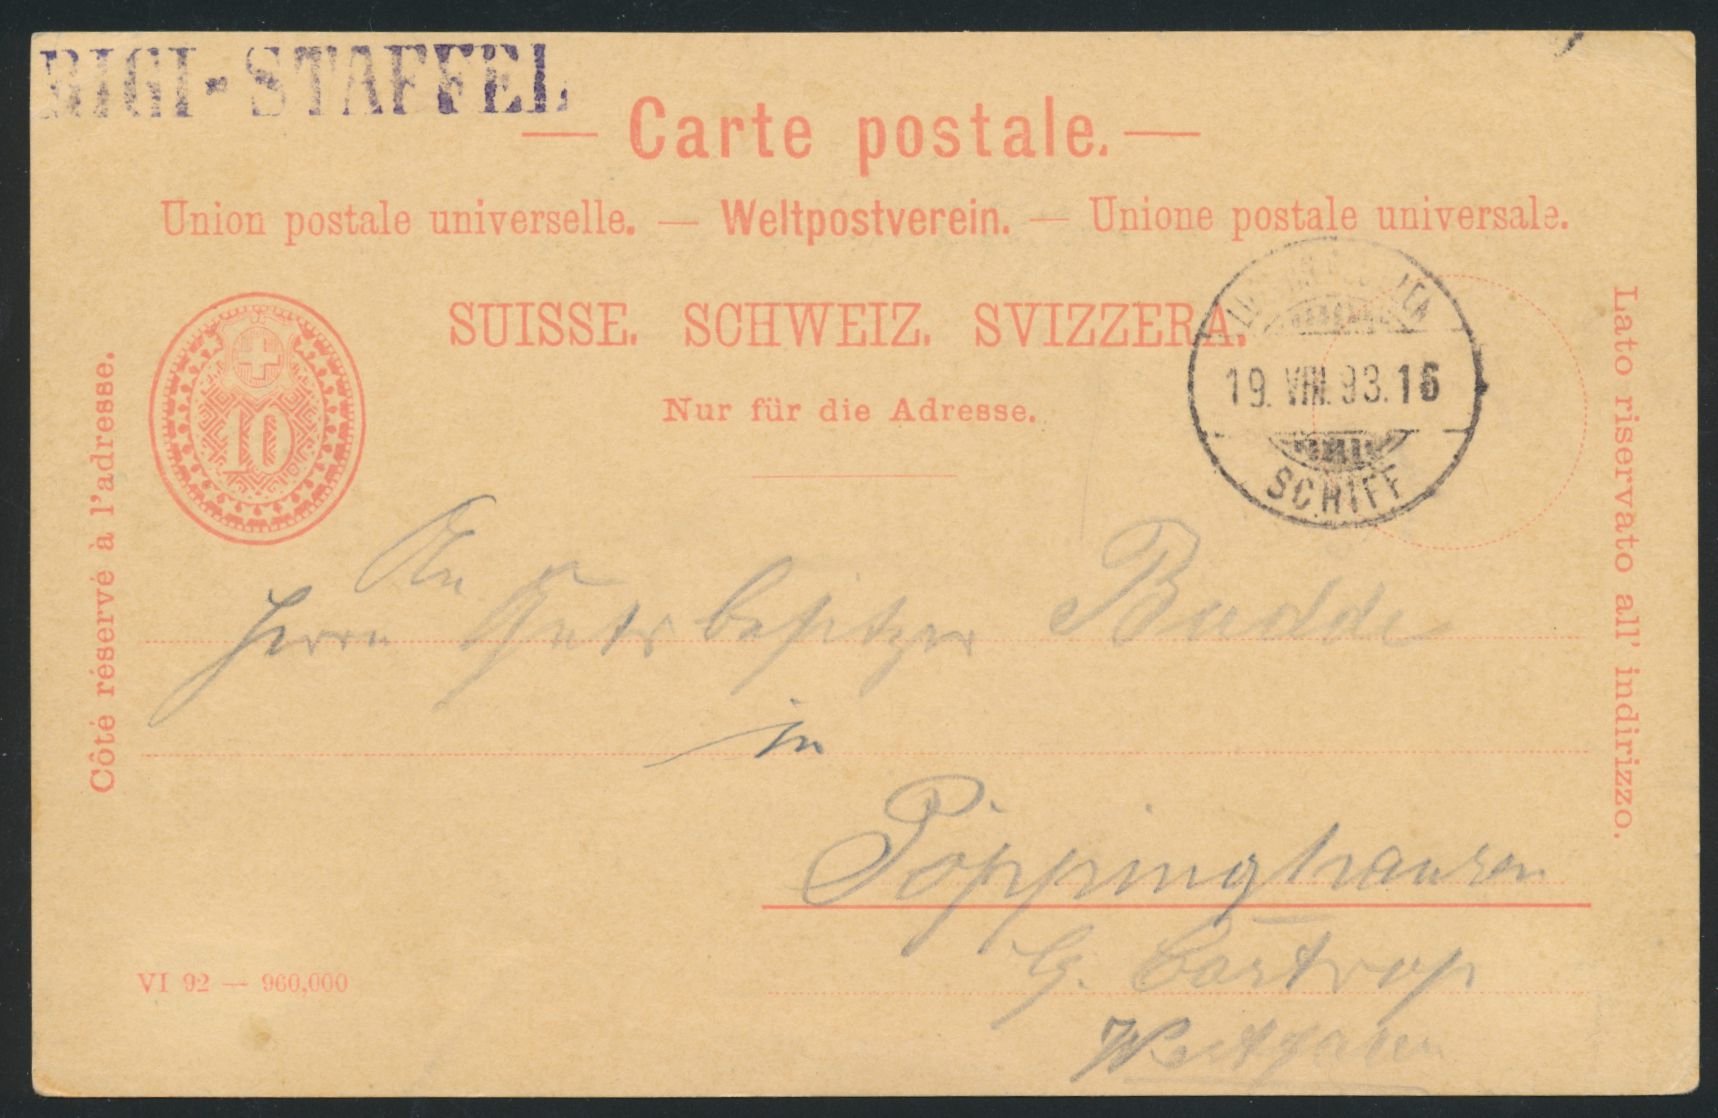 RIGI-STAFFEL
— Carte postale. —
Union postale universelle. — Weltpostverein. — Unione postale universale.
SUISSE. SCHWEIZ. SVIZZERA.
Nur für die Adresse.
10
Côté réservé à l'adresse.
Lato riservato all' indirizzo.
19. VIII. 93. 16
SCHIFF
An
Herrn Gutsbesitzer Budde
in
Pöppinghausen
Castrop
Westfalen
VI 92 — 960,000